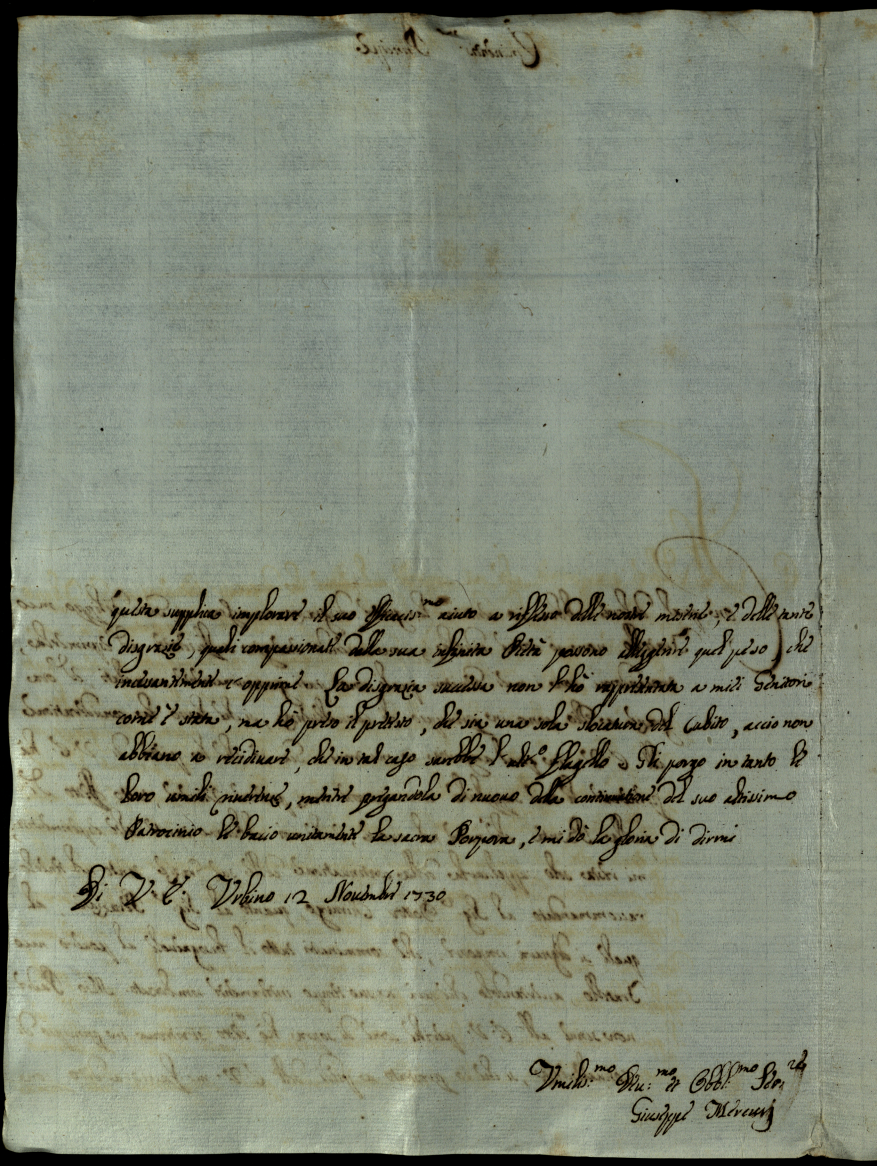 questa supplica implorare il suo efficacis.mo aiuto a riflesso delle nostre miserie, e delle tante
disgrazie, quali compassionate dalla sua infinita Pietà possono alleggerire quel peso, che
incessantemente ci opprime. La disgrazia successa non l'hò rappresentata a miei Genitori
come è stata, ma hò preso il pretesto, che sia una sola slocatura del Cubito, acciò non
abbiano a recidivare, che in tal caso sarebbe l'ult.o flagello. Gli porgo in tanto le
loro umili riverenze, mentre pregandola di nuovo della continuatione del suo altissimo
Patrocinio le bacio unitamente la sacra Porpora, e mi dò la gloria di dirmi
Di V. E. Urbino 12 Novembre 1730
Umilis.mo Dev.mo et Obbl.mo
Giuseppe Mercurj